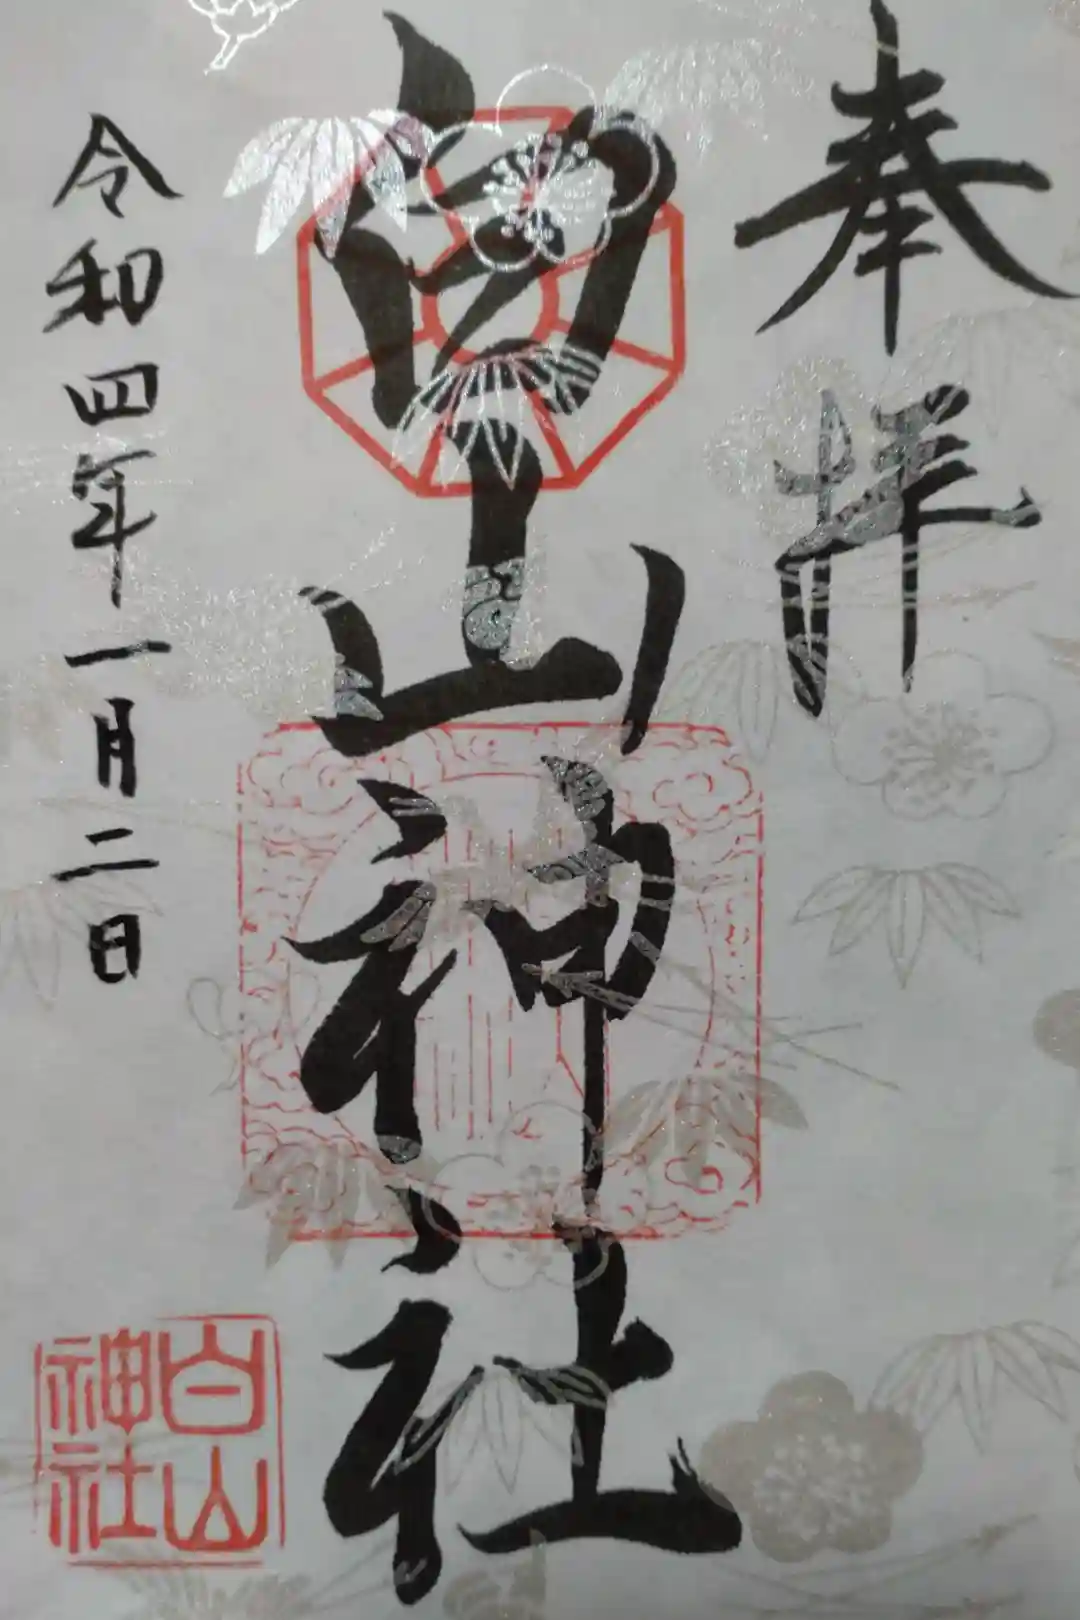 奉拝
白山神社
令和四年一月二日
白山
神社